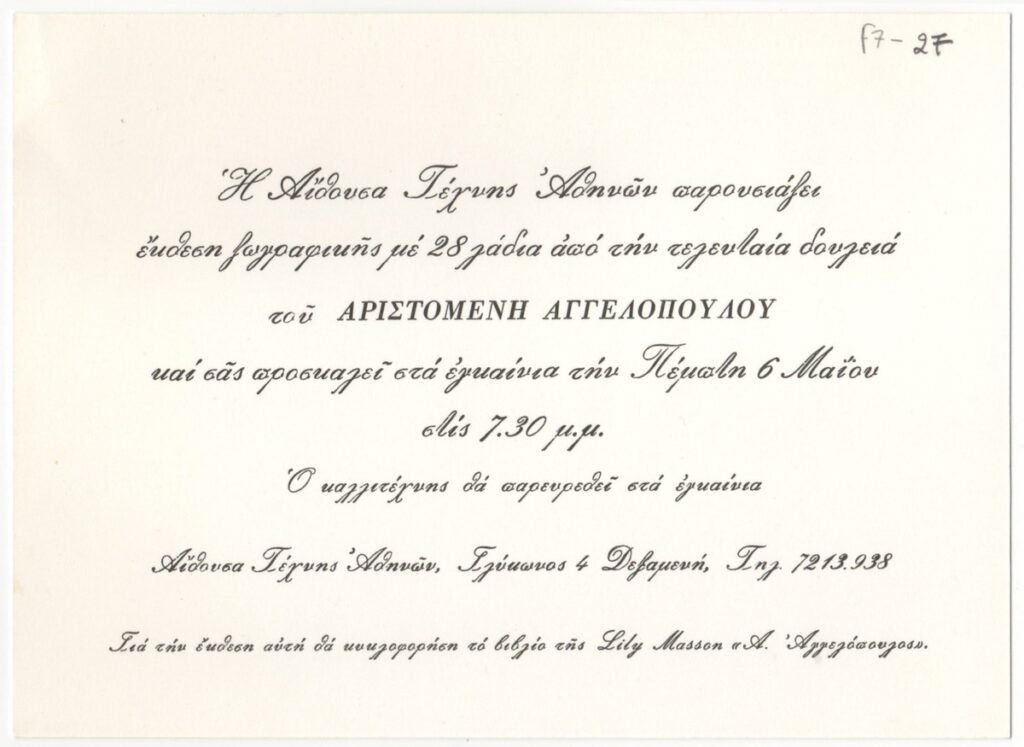 f7- 27
Ἡ Αἴθουσα Τέχνης Ἀθηνῶν παρουσιάζει
ἔκθεση ζωγραφικῆς μέ 28 λάδια ἀπό τήν τελευταία δουλειά
τοῦ ΑΡΙΣΤΟΜΕΝΗ ΑΓΓΕΛΟΠΟΥΛΟΥ
καί σᾶς προσκαλεῖ στά ἐγκαίνια τήν Πέμπτη 6 Μαΐου
στίς 7.30 μ.μ.
Ὁ καλλιτέχνης θά παρευρεθεῖ στά ἐγκαίνια
Αἴθουσα Τέχνης Ἀθηνῶν, Γλύκωνος 4 Δεξαμενή, Τηλ. 7213.938
Γιά τήν ἔκθεση αὐτή θά κυκλοφορήση τό βιβλίο τῆς Lily Masson «Α. Ἀγγελόπουλος».